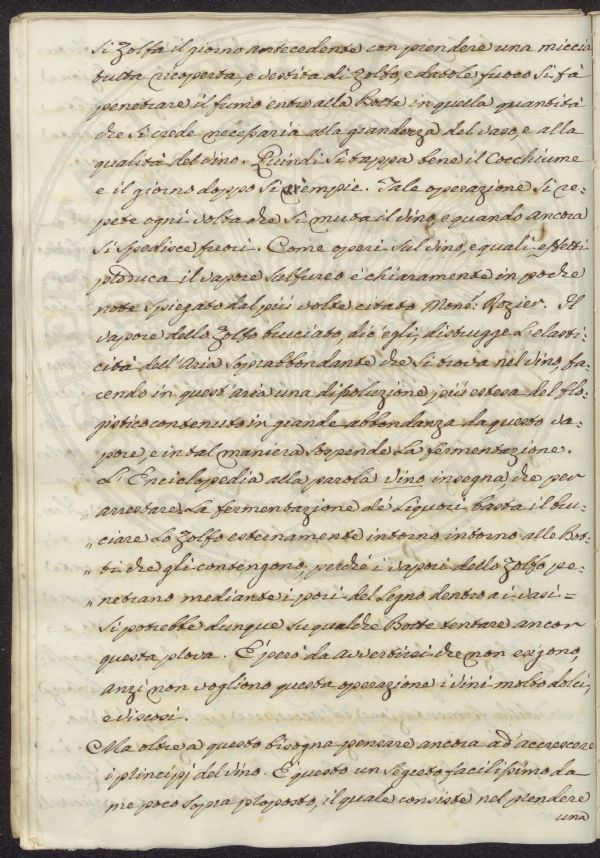 si zolfa il giorno antecedente con prendere una miccia
tutta ricoperta, e vestita di zolfo, e datole fuoco si fà
penetrare il fumo entro alla Botte in quella quantità
che si crede necessaria alla grandezza del vaso, e alla
qualità del vino. Quindi si tappa bene il Cocchiume
e il giorno doppo si riempie. Tale operazione si re-
pete ogni volta che si muta il vino, e quando ancora
si spedisce fuori. Come operi sul vino, e quali effetti
produca il vapore sulfureo è chiaramente in poche
note spiegato dal più volte citato Mons: Rozier. Il
vapore dello zolfo bruciato, dic'egli, distrugge l'elasti-
cità dell'Aria soprabbondante che si trova nel vino, fa-
cendo in quest'aria una dissoluzione più estesa del flo-
gistico contenuto in grande abbondanza da questo va-
pore, e in tal maniera sospende la fermentazione.
L'Enciclopedia alla parola vino insegna che per
arrestare la fermentazione de' Liquori basta il bru-
„ ciare lo zolfo esternamente intorno intorno alle Bot-
„ ti che gli contengono, perchè i vapori dello zolfo pe-
„ netrano mediante i pori del legno dentro a i vasi =
Si potrebbe dunque su qualche Botte tentare ancor
questa prova. È però da avvertirsi che non esigono,
anzi non vogliono questa operazione i vini molto dolci,
e viscosi.
Ma oltre a questo bisogna pensare ancora ad accrescere
i principj del vino. È questo un segreto facilissimo da
me poco sopra proposto, il quale consiste nel prendere
una